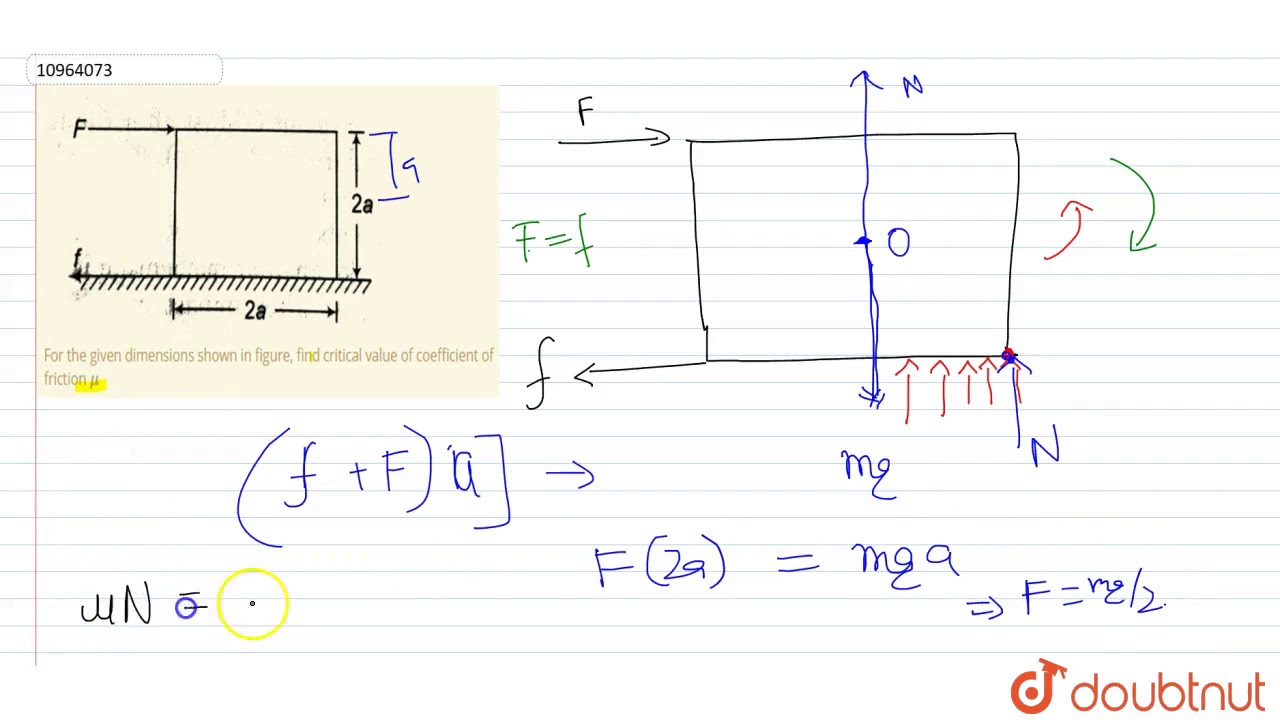 10964073
F
2a
a
f
2a
For the given dimensions shown in figure, find critical value of coefficient of
friction μ
N
F
F = f
O
f
N
mg
(f + F) a] →
F(2a) = mga
⇒ F = mg/2.
μN =
doubtnut